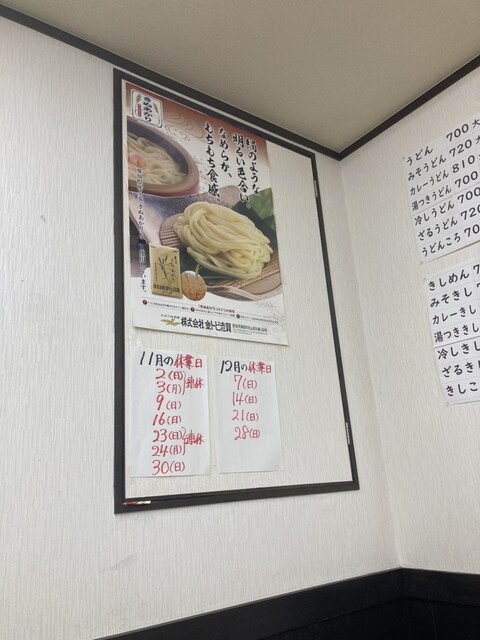 きぬあかり
絹のような
明るい色合い
なめらか、
もちもち食感。
株式会社 金トビ志賀
11月の休業日
2(日)
3(月) 連休
9(日)
16(日)
23(日) 連休
24(月)
30(日)
12月の休業日
7(日)
14(日)
21(日)
28(日)
うどん 700 大
みそうどん 720 大
カレーうどん 810
湯つきうどん 700
冷しうどん 700
ざるうどん 720
うどんころ 70
きしめん 7
みそきし
カレーきし
湯つききし
冷しきし
ざるき
きしこ